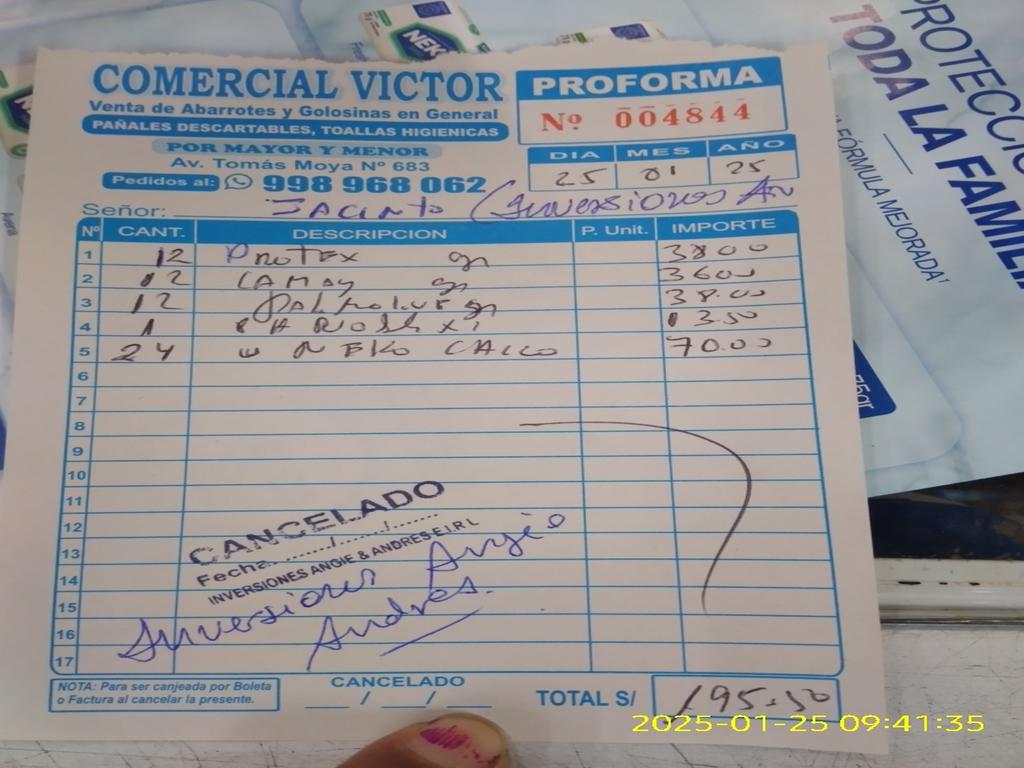 COMERCIAL VICTOR
Venta de Abarrotes y Golosinas en General
PAÑALES DESCARTABLES, TOALLAS HIGIENICAS
POR MAYOR Y MENOR
Av. Tomás Moya Nº 683
Pedidos al: 998 968 062
PROFORMA
Nº 004844
DIA MES AÑO
25 01 25
Señor: Jacinto (Inversiones An
Nº CANT. DESCRIPCION P. Unit. IMPORTE
1 12 Protex gr 3800
2 12 CAMAY gr 3600
3 12 PALMOLIVE gr 38.00
4 1 13.50
5 24 NEKO 70.00
6
7
8
9
10
11
12
13
14
15
16
17
CANCELADO
Fecha....../....../......
INVERSIONES ANGIE & ANDRES E.I.R.L
Inversiones Angie
Andres.
NOTA: Para ser canjeada por Boleta
o Factura al cancelar la presente.
CANCELADO
/ /
TOTAL S/ 195.50
PROTECCIÓ
TODA LA FAMILI
FÓRMULA MEJORADA¹
NEK
2025-01-25 09:41:35